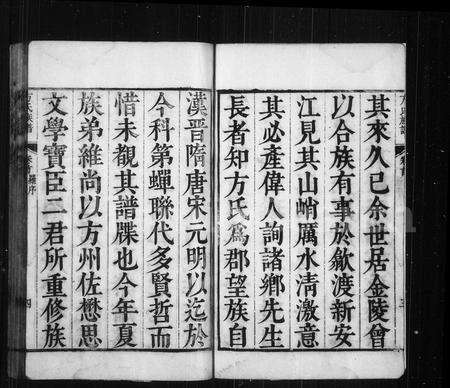 其來久已余世居金陵曾
以合族有事於歙渡新安
江見其山峭厲水清激意
其必產偉人詢諸鄉先生
長者知方氏爲郡望族自
漢晉隋唐宋元明以迄於
今科第蟬聯代多賢哲而
惜未覩其譜牒也今年夏
族弟維尚以方州佐懋思
文學寶臣二君所重修族
方氏族譜 卷首 羅序 四